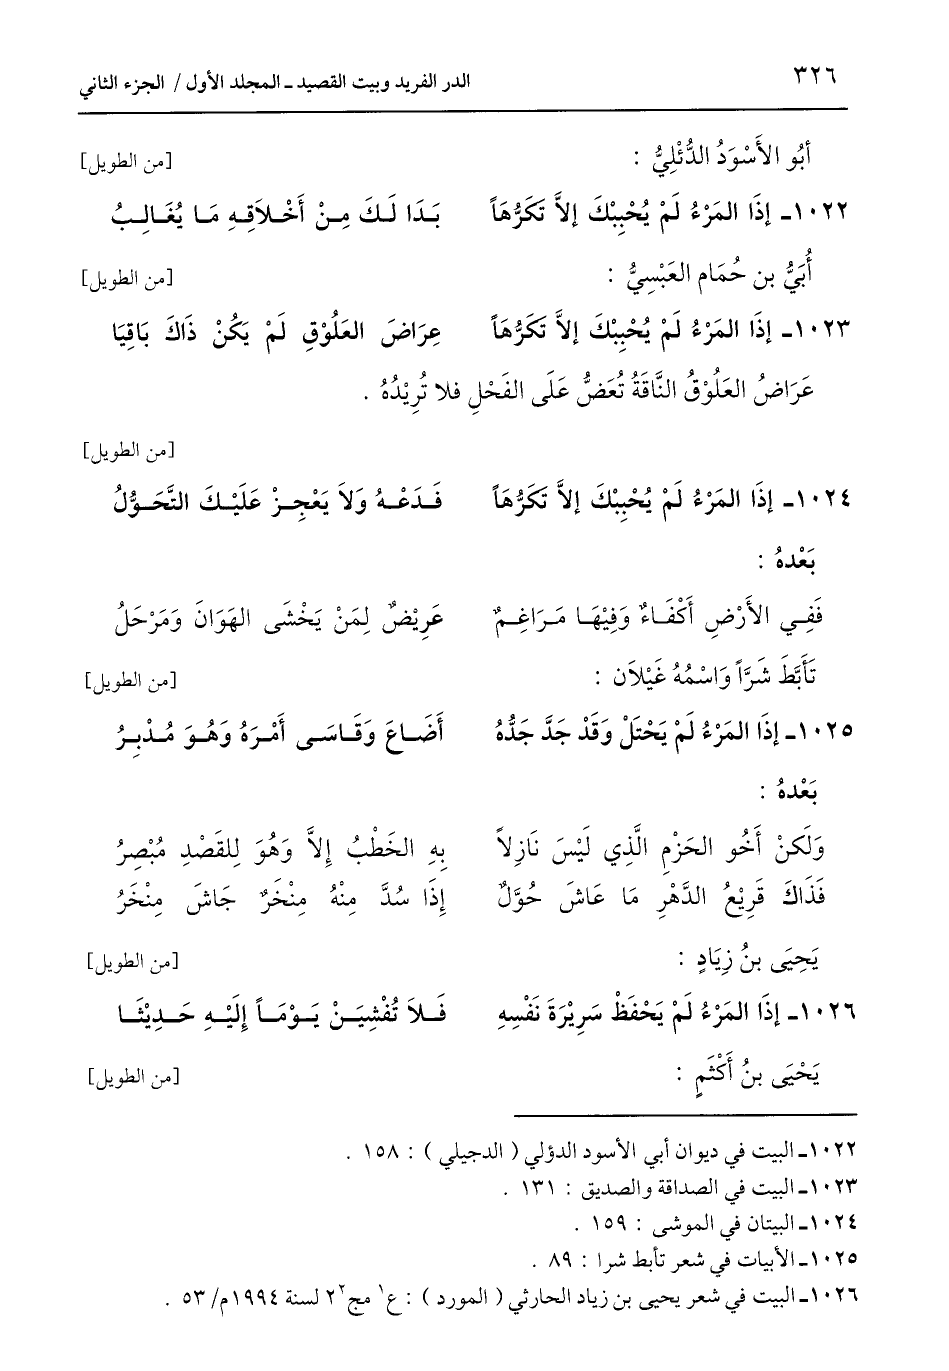 ٣٢٦ الدر الفريد وبيت القصيد ـ المجلد الأول / الجزء الثاني
أَبُو الأَسْوَدُ الدُّئْلِيُّ : [من الطويل]
١٠٢٢ـ إِذَا المَرْءُ لَمْ يُحْبِبْكَ إلاَّ تَكَرُّهَاً بَدَا لَكَ مِنْ أَخْلاَقِهِ مَا يُغَالِبُ
أُبَيُّ بن حُمَام العَبْسِيُّ : [من الطويل]
١٠٢٣ـ إِذَا المَرْءُ لَمْ يُحْبِبْكَ إلاَّ تَكَرُّهَاً عِرَاضَ العَلُوْقِ لَمْ يَكُنْ ذَاكَ بَاقِيَا
عَرَاضُ العَلُوْقُ النَّاقَةُ تُعَضُّ عَلَى الفَحْلِ فلا تُرِيْدُهُ .
[من الطويل]
١٠٢٤ـ إِذَا المَرْءُ لَمْ يُحْبِبْكَ إلاَّ تَكَرُّهَاً فَدَعْهُ وَلاَ يَعْجِزْ عَلَيْكَ التَّحَوُّلُ
بَعْدهُ :
فَفِي الأَرْضِ أَكْفَاءٌ وَفِيْهَا مَرَاغِمٌ عَرِيْضٌ لِمَنْ يَخْشَى الهَوَانَ وَمَرْحَلُ
تَأَبَّطَ شَرَّاً وَاسْمُهُ غَيْلاَن : [من الطويل]
١٠٢٥ـ إِذَا المَرْءُ لَمْ يَحْتَلْ وَقَدْ جَدَّ جَدُّهُ أَضَاعَ وَقَاسَى أَمْرَهُ وَهُوَ مُدْبِرُ
بَعْدهُ :
وَلَكنْ أَخُو الحَزْمِ الَّذِي لَيْسَ نَازِلاً بِهِ الخَطْبُ إِلاَّ وَهُوَ لِلقَصْدِ مُبْصِرُ
فَذَاكَ قَرِيْعُ الدَّهْرِ مَا عَاشَ حُوَّلٌ إِذَا سُدَّ مِنْهُ مِنْخَرٌ جَاشَ مِنْخَرُ
يَحِيَى بنُ زِيَادٍ : [من الطويل]
١٠٢٦ـ إِذَا المَرْءُ لَمْ يَحْفَظْ سَرِيْرَةَ نَفْسِهِ فَلاَ تُفْشِيَنْ يَوْمَاً إِلَيْهِ حَدِيْثَا
يَحْيَى بنُ أَكْثَمٍ : [من الطويل]
١٠٢٢ـ البيت في ديوان أبي الأسود الدؤلي ( الدجيلي ) : ١٥٨ .
١٠٢٣ـ البيت في الصداقة والصديق : ١٣١ .
١٠٢٤ـ البيتان في الموشى : ١٥٩ .
١٠٢٥ـ الأبيات في شعر تأبط شرا : ٨٩ .
١٠٢٦ـ البيت في شعر يحيى بن زياد الحارثي ( المورد ) : ع١ مج٢٢ لسنة ١٩٩٤م/ ٥٣ .